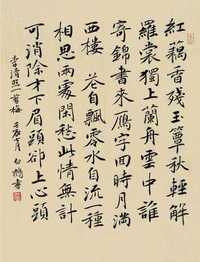 紅藕香殘玉簟秋輕解
羅裳獨上蘭舟雲中誰
寄錦書來雁字回時月滿
西樓 花自飄零水自流一種
相思兩處閑愁此情無計
可消除才下眉頭卻上心頭
李清照一剪梅